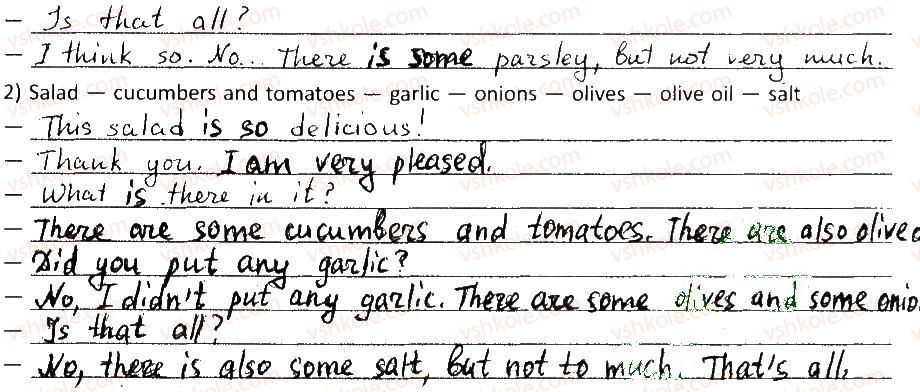 – Is that all?
– I think so. No... There is some parsley, but not very much.
2) Salad — cucumbers and tomatoes — garlic — onions — olives — olive oil — salt
– This salad is so delicious!
– Thank you. I am very pleased.
– What is there in it?
– There are some cucumbers and tomatoes. There are also olive
– Did you put any garlic?
– No, I didn't put any garlic. There are some olives and some onio
– Is that all?
– No, there is also some salt, but not to much. That's all.